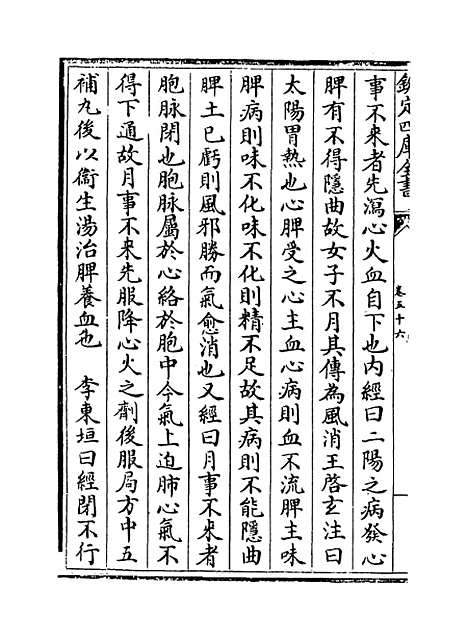 欽定四庫全書
卷五十六
事不來者先瀉心火血自下也内經曰二陽之病發心
脾有不得隱曲故女子不月其傳為風消王啓玄注曰
太陽胃熱也心脾受之心主血心病則血不流脾主味
脾病則味不化味不化則精不足故其病則不能隱曲
脾土已虧則風邪勝而氣愈消也又經曰月事不來者
胞脉閉也胞脉屬於心絡於胞中今氣上迫肺心氣不
得下通故月事不來先服降心火之劑後服局方中五
補丸後以衞生湯治脾養血也　李東垣曰經閉不行